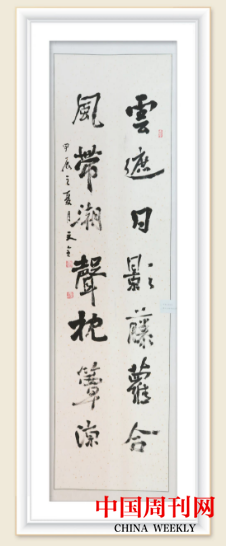 雲遮日影藤蘿合
風带潮聲枕簟涼
甲辰之夏月天
中国周刊网
CHINA WEEKLY